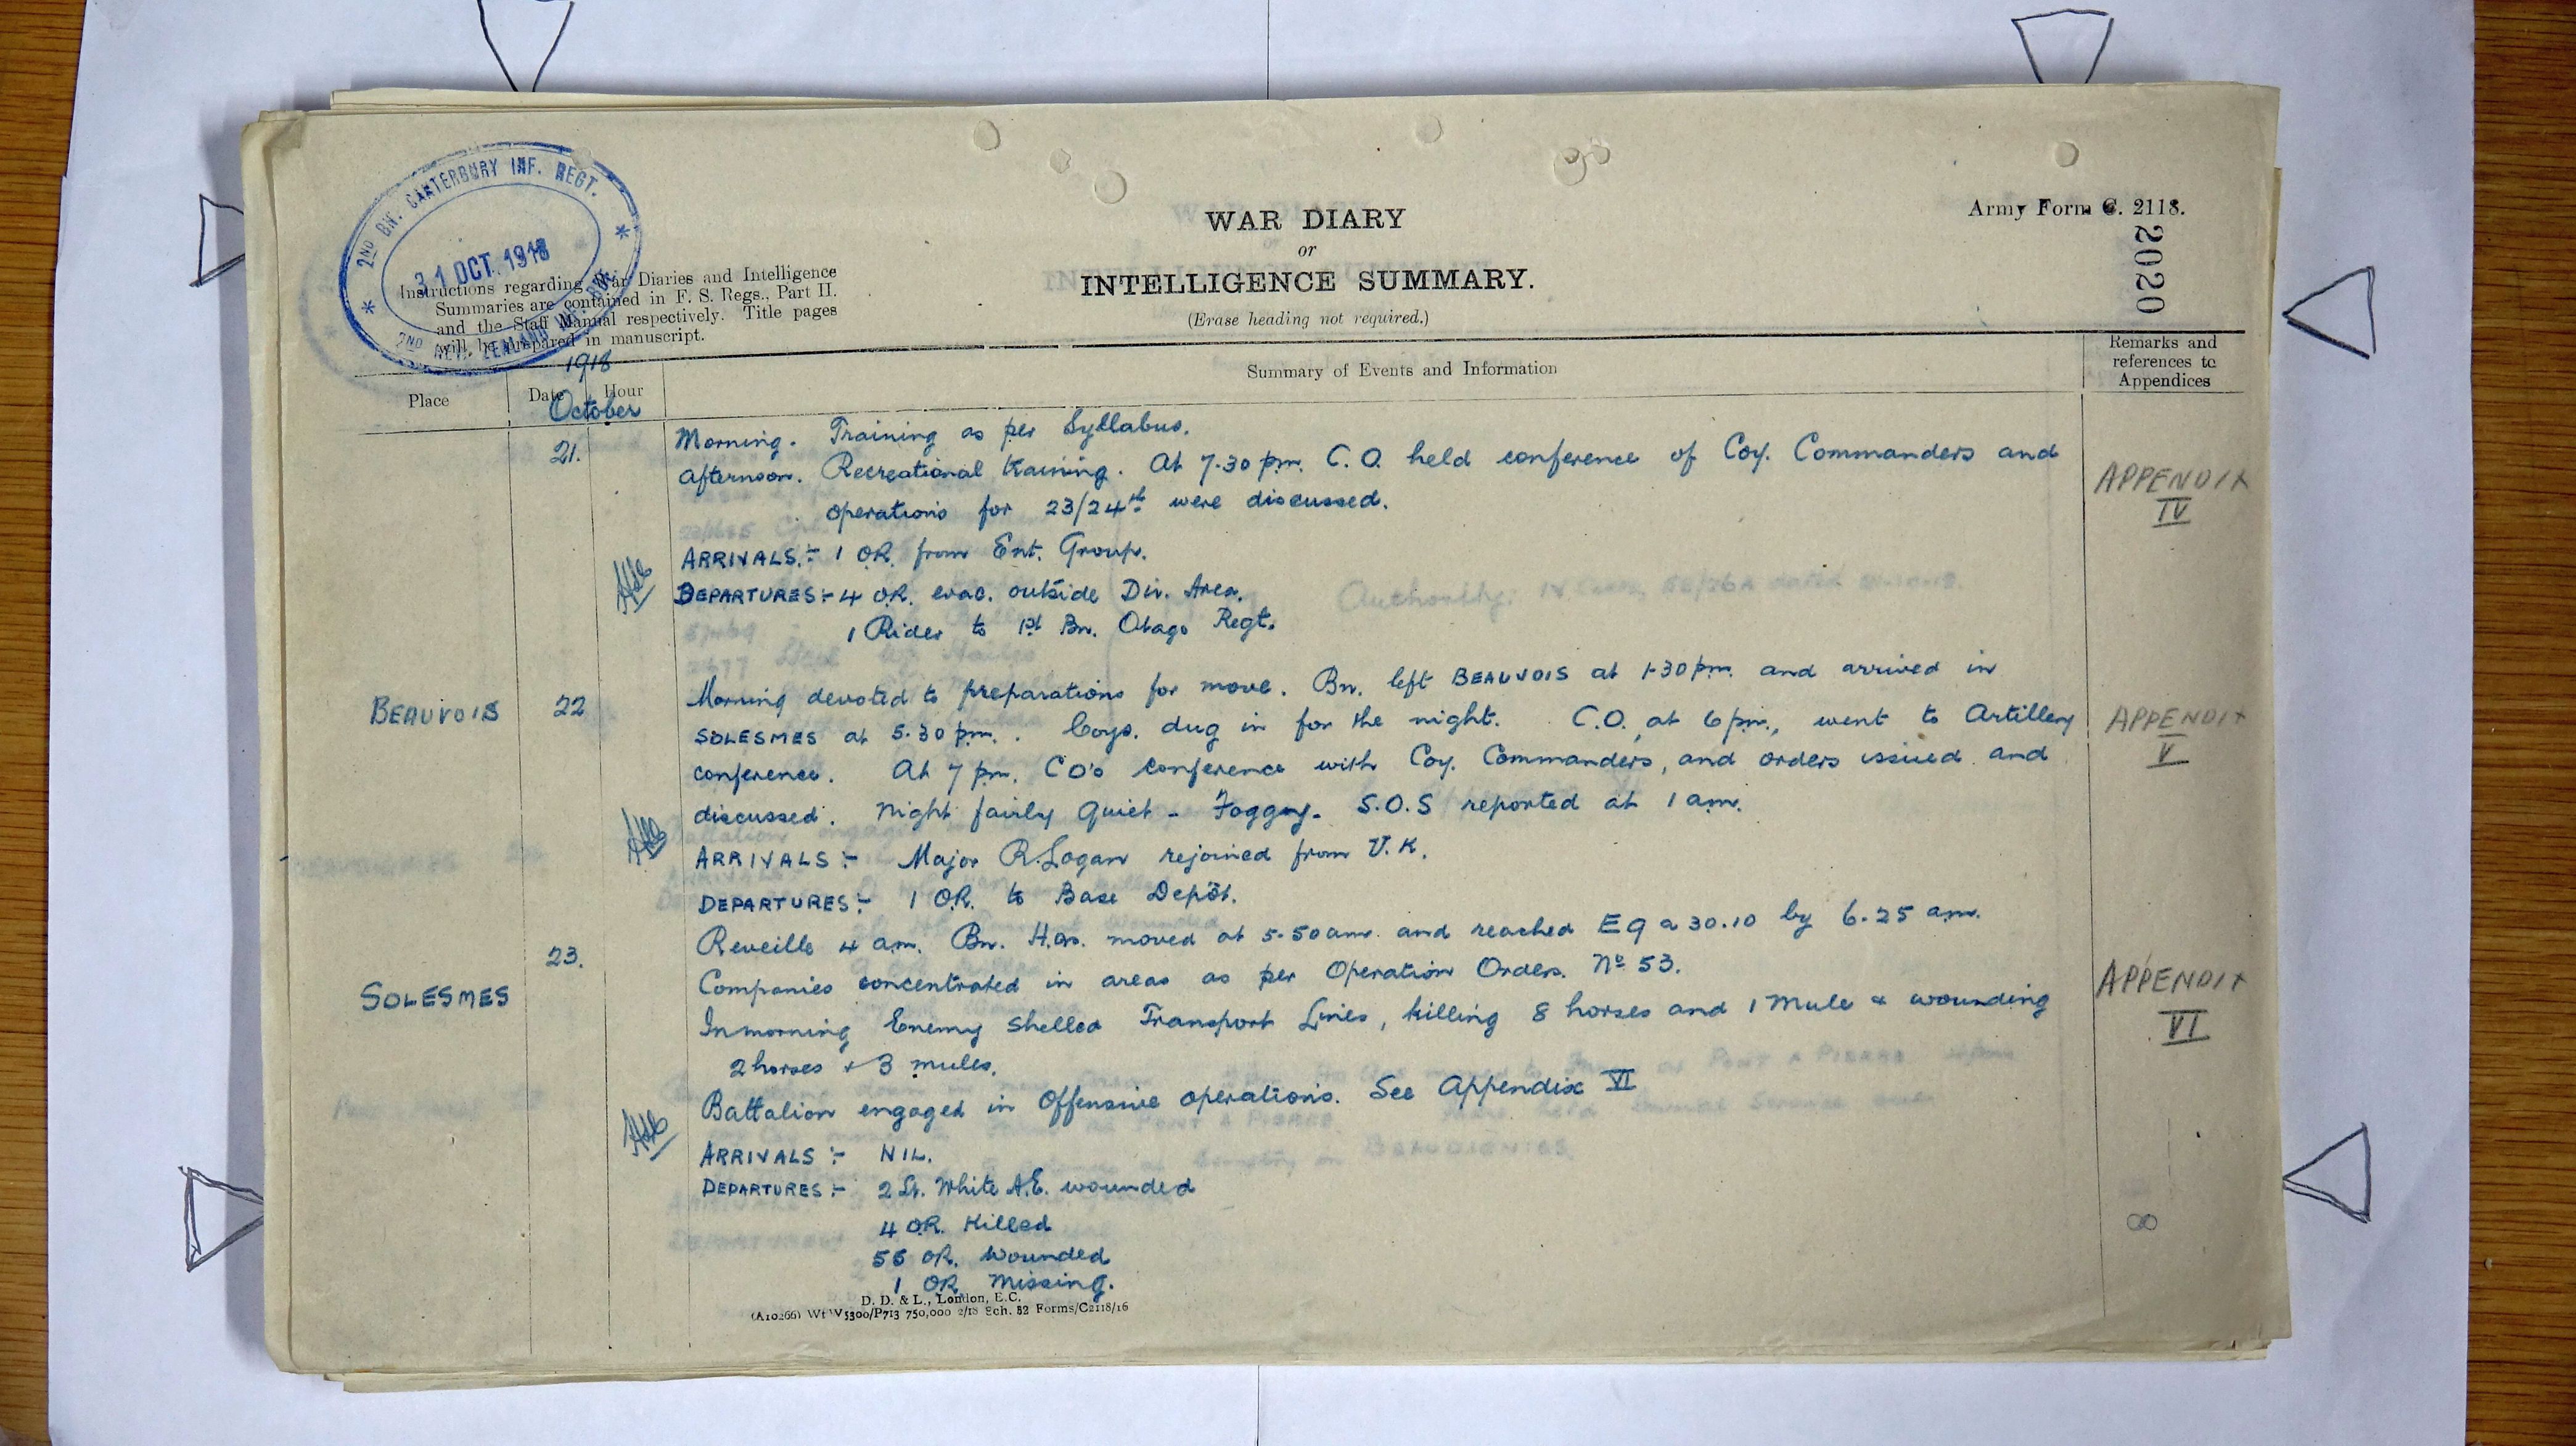 2ND BN. CANTERBURY INF. REGT.
31 OCT. 1918
Army Form C. 2118.
2020
WAR DIARY
or
INTELLIGENCE SUMMARY.
(Erase heading not required.)
Instructions regarding War Diaries and Intelligence
Summaries are contained in F. S. Regs., Part II.
and the Staff Manual respectively. Title pages
will be prepared in manuscript.
1918
Place Date Hour Summary of Events and Information Remarks and references to Appendices
October
21. Morning. Training as per Syllabus.
Afternoon. Recreational training. At 7.30 pm. C.O. held conference of Coy. Commanders and
operations for 23/24th were discussed. APPENDIX IV
ARRIVALS:- 1 OR. from Ent. Group.
DEPARTURES:- 4 OR. evac. outside Div. Area.
1 Rider to 1st Bn. Otago Regt.
BEAUVOIS 22 Morning devoted to preparations for move. Bn. left BEAUVOIS at 1-30 pm. and arrived in
SOLESMES at 5.30 pm. Coys. dug in for the night. C.O., at 6 pm., went to Artillery APPENDIX V
conference. At 7 pm. CO's conference with Coy. Commanders, and orders issued and
discussed. Night fairly quiet - Foggy. S.O.S reported at 1 am.
ARRIVALS:- Major R. Logan rejoined from U.K.
DEPARTURES:- 1 OR. to Base Depôt.
SOLESMES 23. Reveille 4 am. Bn. H.Qrs. moved at 5.50 am. and reached E9 a 30.10 by 6.25 am.
Companies concentrated in areas as per Operation Orders. No 53. APPENDIX VI
In morning Enemy shelled Transport Lines, killing 8 horses and 1 Mule & wounding
2 horses & 3 mules.
Battalion engaged in Offensive operations. See Appendix VI
ARRIVALS:- NIL.
DEPARTURES:- 2 Lt. White A.E. wounded
4 OR. Killed
55 OR. Wounded
1 OR Missing.
8
D. D. & L., London, E.C.
(A10266) Wt W5300/P713 750,000 2/18 Sch. 52 Forms/C2118/16